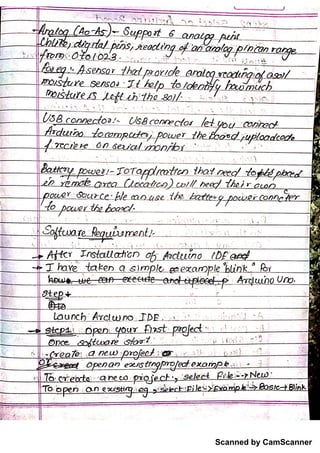 Analog (A0-A5):- Support 6 analog pins
Unlike, digital pins, reading of an analog pin can range
from 0 to 1023.
For eg:- A sensor that provide analog reading of a soil
moisture sensor. It help to identify how much
moisture is left in the soil.
USB connector:- USB connector let you connect
Arduino to computer, power the board, upload code
& recieve on serial monitor
Battery power:- IoT application that need to placed
in remote area (location) will need their own
power source. We can use the battery power connector
to power the board.
Software Requirement:-
→ After Installation of Arduino IDE and
→ I have taken a simple example "blink." For
how we can execute and upload Arduino Uno.
Step
Launch Arduino IDE.
→ Step1: open your First project
Once software start
- Create a new project
or open an existing project example
To create a new project, select File → New.
To open an existing eg, select File → Example → Basic → Blink
Scanned by CamScanner